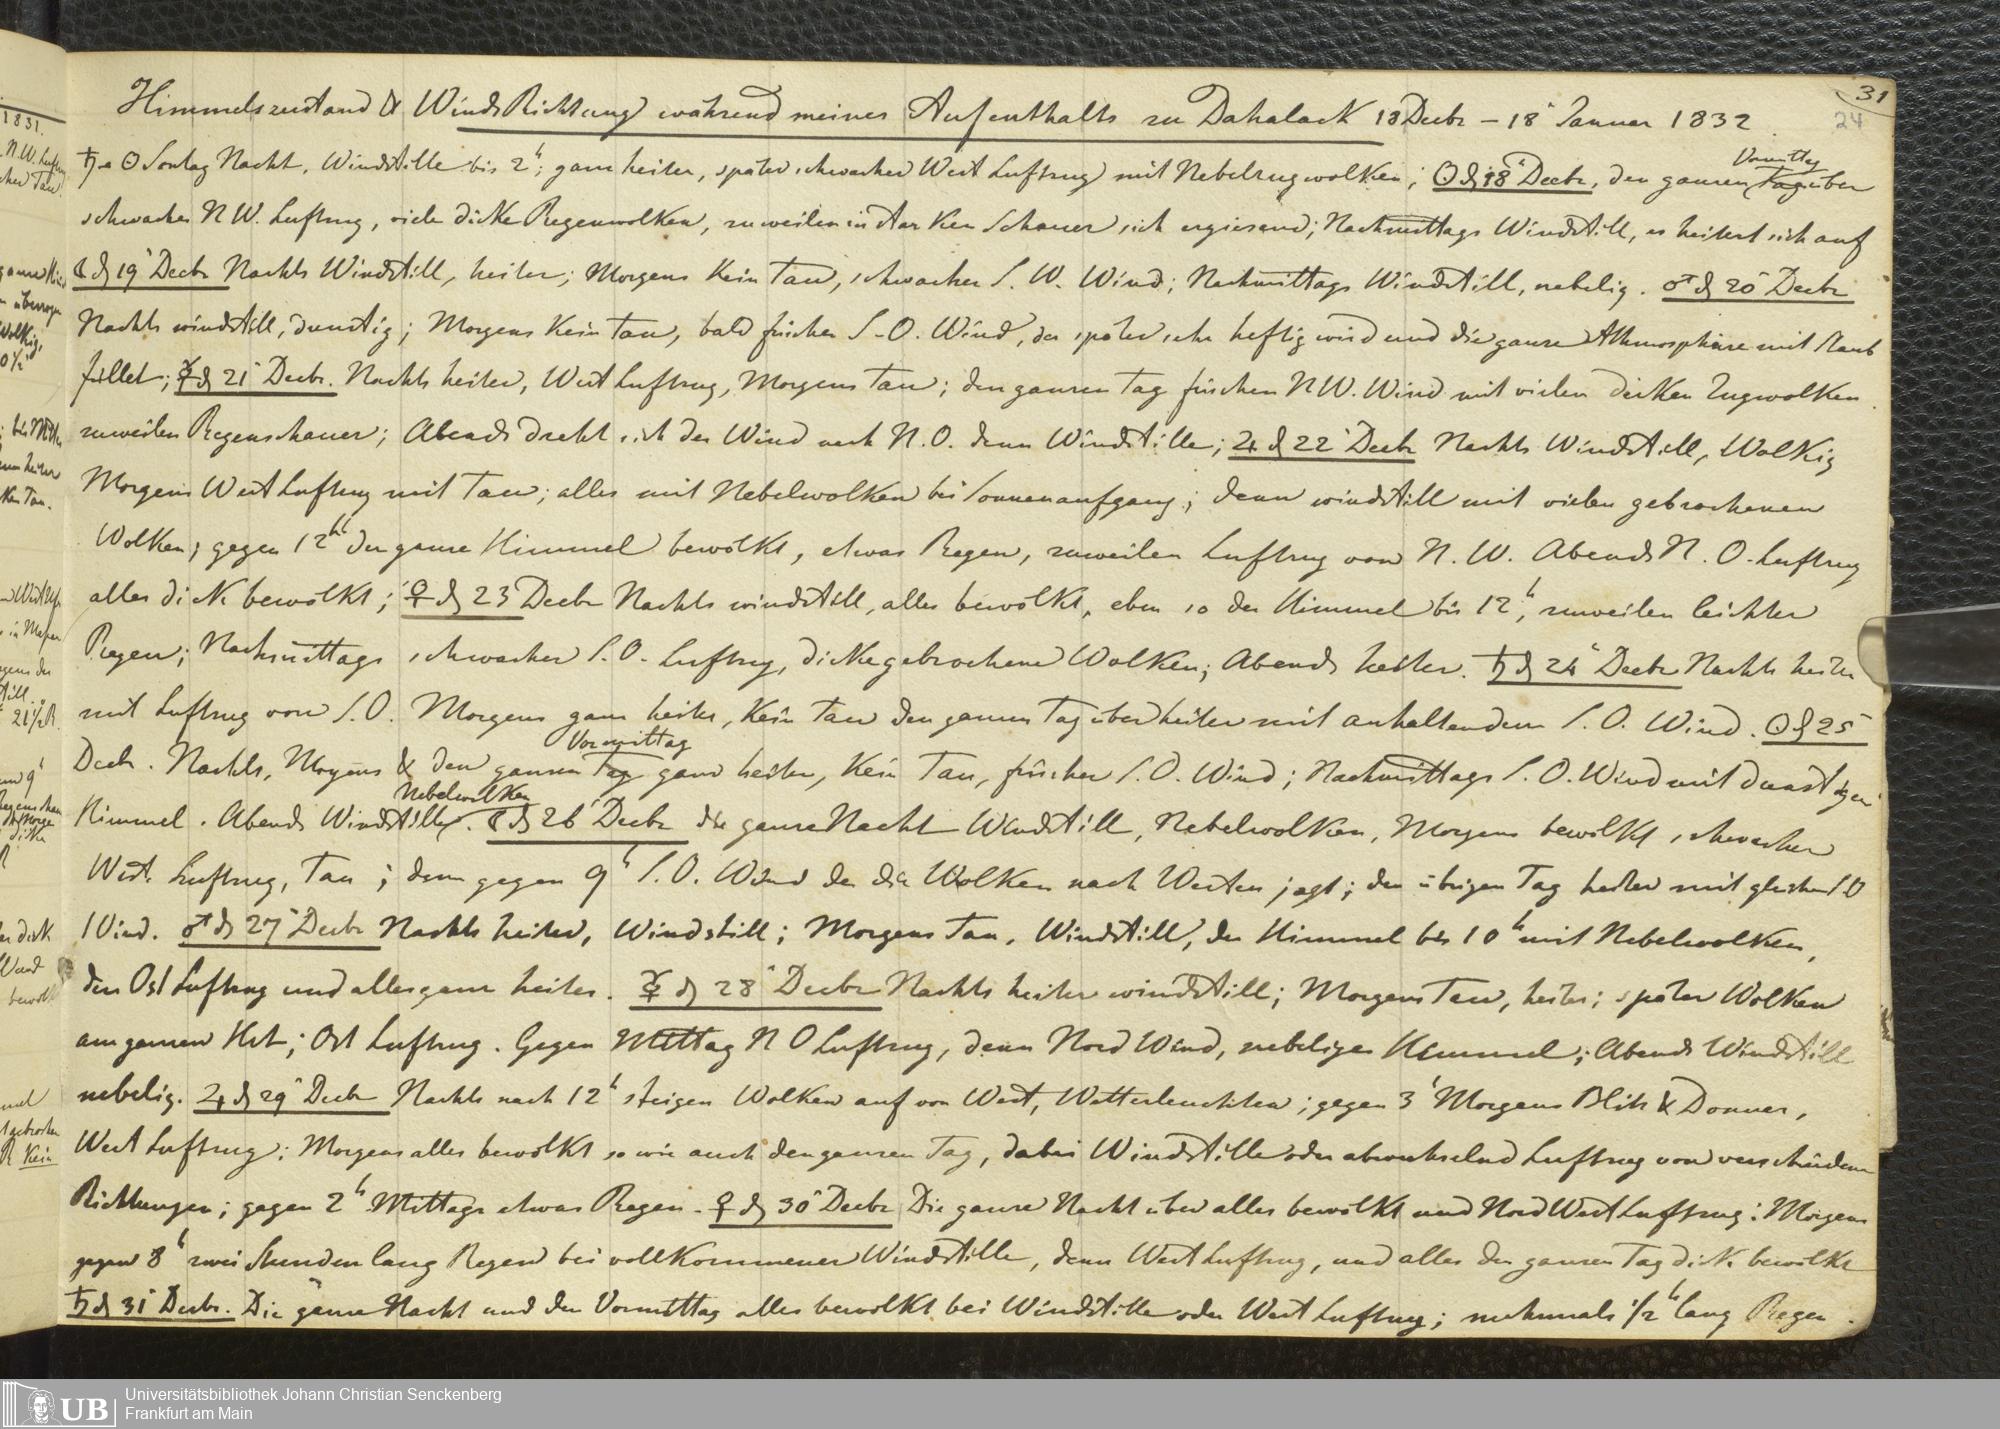 31
24
Himmelszustand & Winds Richtung während meines Aufenthalts zu Dahalack 18 Decbr – 18 Januar 1832.
♄ a ☉ Sontag Nacht, Windstille bis 2h; ganz heiter, später schwacher West Luftzug mit Nebelzugwolken; ☉ d 18 Decbr, den ganzen Tag über
Vormittag
schwacher N W. Luftzug, viele dicke Regenwolken, zuweilen in starken Schauer sich ergiesend; Nachmittags Windstill, es heitert sich auf
☾ d 19 Decbr Nachts Windstill, heiter; Morgens Kein Tau, schwacher S. W. Wind; Nachmittags Windstill, nebelig. ♂ d 20 Decbr
Nachts windstill, dunstig; Morgens Kein Tau, bald frischer S-O. Wind, der später sehr heftig wird und die ganze Athmosphäre mit Staub
füllet; ☿ d 21 Decbr. Nachts heiter, West Luftzug, Morgens Tau; den ganzen Tag frischen N W. Wind mit vielen dicken Zugwolken
zuweilen Regenschauer; Abends dreht sich der Wind nach N. O. dann Windstille; ♃ d 22 Decbr Nachts Windstill, Wolkig
Morgens West Luftzug mit Tau; alles mit Nebelwolken bei Sonnenaufgang; dann windstill mit vielen gebrochenen
Wolken; gegen 12h der ganze Himmel bewölkt, etwas Regen, zuweilen Luftzug von N. W. Abends N. O. Luftzug
alles dick bewölkt; ♀ d 23 Decbr Nachts windstill, alles bewölkt, eben so der Himmel bis 12h, zuweilen leichter
Regen; Nachmittags schwacher S. O. Luftzug, dicke gebrochene Wolken; Abends heiter. ♄ d 24 Decbr Nachts heiter
mit Luftzug von S. O. Morgens ganz heiter, Kein Tau den ganzen Tag über heiter mit anhaltendem S. O. Wind. ☉ d 25
Decbr. Nachts, Morgens & den ganzen Tag ganz heiter, Kein Tau, frischer S. O. Wind; Nachmittags S. O. Wind mit dunstigen
Vormittag
Himmel. Abends Windstille. ☾ d 26 Decbr die ganze Nacht Windstill, Nebelwolken, Morgens bewölkt schwacher
Nebelwolken
West. Luftzug, Tau; dann gegen 9h S. O. Wind der die Wolken nach Westen jagt; den übrigen Tag heiter mit gleichen S O
Wind. ♂ d 27 Decbr Nachts heiter, Windstill; Morgens Tau, Windstill, der Himmel bis 10h mit Nebelwolken,
den Ost Luftzug und alles ganz heiter. ☿ d 28 Decbr Nachts heiter windstill; Morgens Tau, heiter; später Wolken
am ganzen Hzt; Ost Luftzug. Gegen Mittag N O Luftzug, dann Nord Wind, nebeliger Himmel; Abends Windstill
nebelig. ♃ d 29 Decbr Nachts nach 12h steigen Wolken auf von West, Wetterleuchten; gegen 3h Morgens Blitz & Donner,
West Luftzug; Morgens alles bewölkt so wie auch den ganzen Tag, dabei Windstille oder abwechselnd Luftzug von verschiedene
Richtungen; gegen 2h Mittags etwas Regen. ♀ d 30 Decbr Die ganze Nacht über alles bewölkt und Nord West Luftzug; Morgens
gegen 8h zwei Stunden lang Regen bei vollkommener Windstille, dann West Luftzug, und alles den ganzen Tag dick bewölkt
♄ d 31 Decbr. Die ganze Nacht und den Vormittag alles bewölkt bei Windstille oder West Luftzug; mehrmals 1/2h lang Regen.
UB
Universitätsbibliothek Johann Christian Senckenberg
Frankfurt am Main